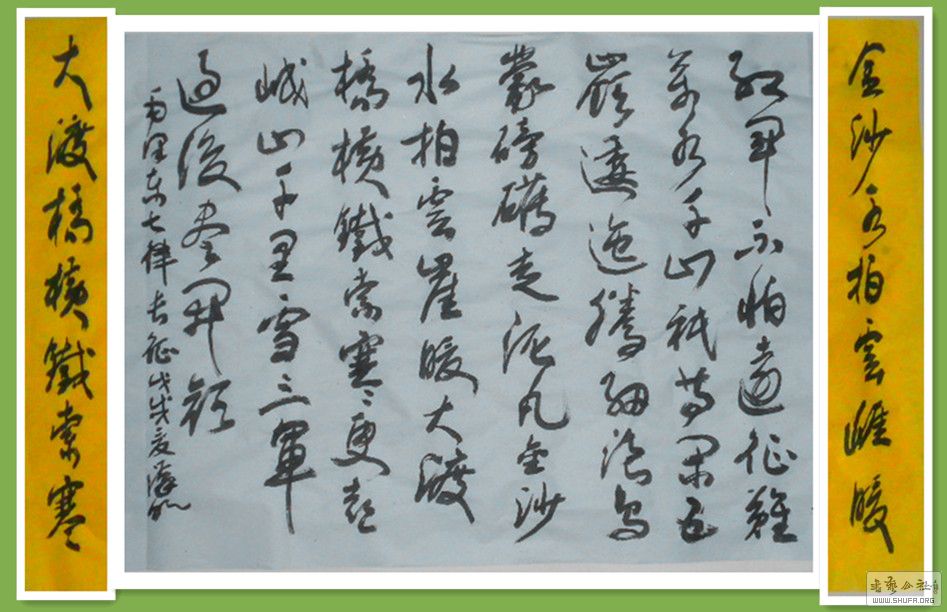 金沙水拍雲崖暖
紅軍不怕遠征難
萬水千山祇等閑五
嶺逶迤騰細浪烏
蒙磅礴走泥丸金沙
水拍雲崖暖大渡
橋橫鐵索寒更喜
岷山千里雪三軍
過後盡開顏
毛澤東七律長征戊戌夏
大渡橋橫鐵索寒
书艺公社
WWW.SHUFA.ORG